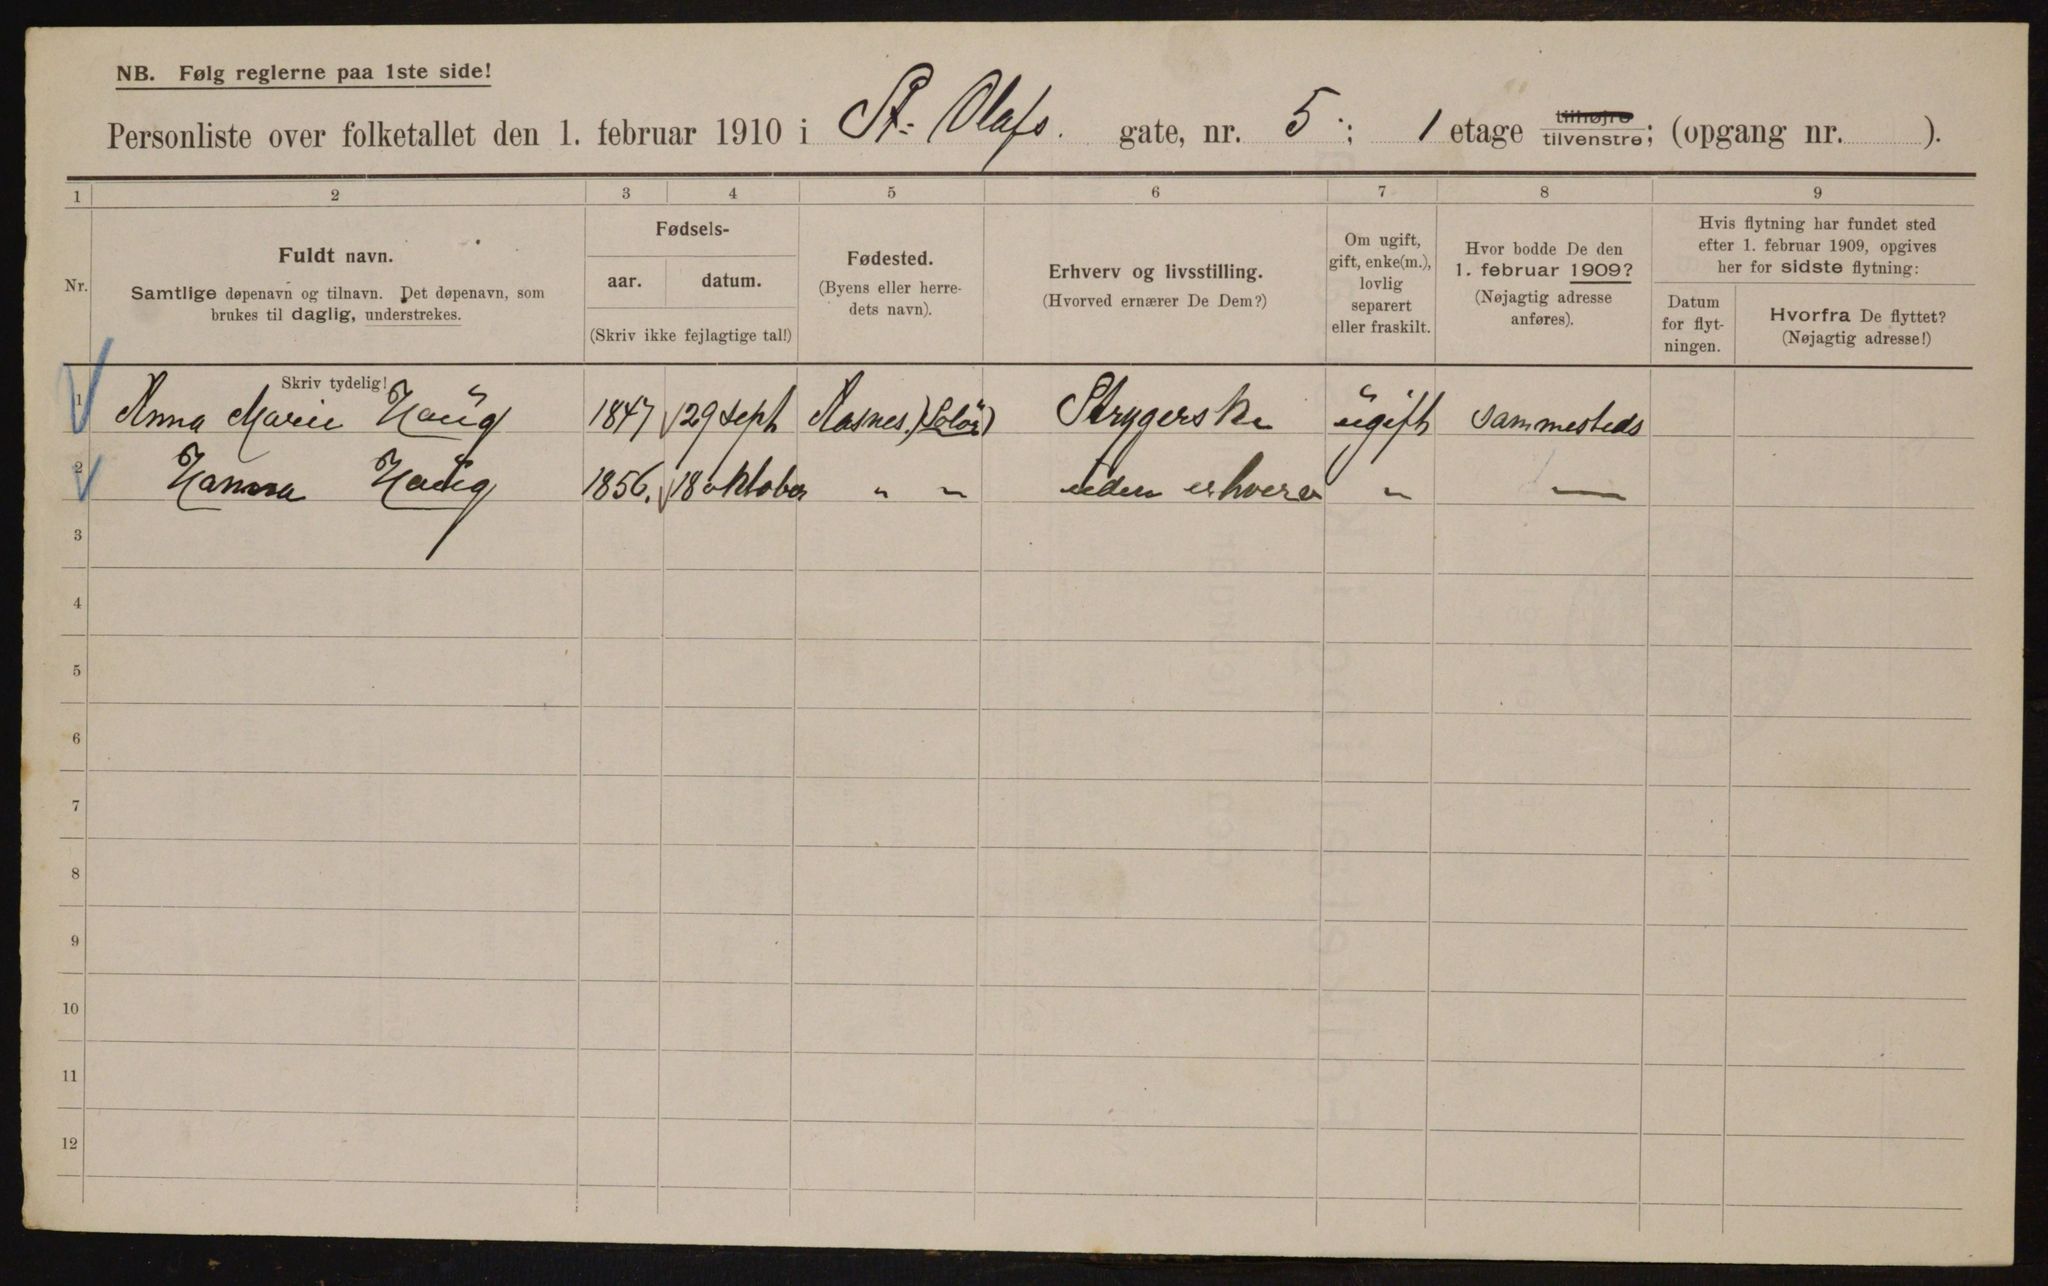 NB. Følg reglerne paa 1ste side!
Personliste over folketallet den 1. februar 1910 i St. Olafs. gate, nr. 5; 1 etage tilhøjre tilvenstre; (opgang nr. ).
1 2 3 4 5 6 7 8 9
Nr.
Fuldt navn.
Samtlige døpenavn og tilnavn. Det døpenavn, som
brukes til daglig, understrekes.
Skriv tydelig!
Fødsels-
aar. datum.
(Skriv ikke fejlagtige tal!)
Fødested.
(Byens eller herre-
dets navn).
Erhverv og livsstilling.
(Hvorved ernærer De Dem?)
Om ugift,
gift, enke(m.),
lovlig
separert
eller fraskilt.
Hvor bodde De den
1. februar 1909?
(Nøjagtig adresse
anføres).
Hvis flytning har fundet sted
efter 1. februar 1909, opgives
her for sidste flytning:
Datum
for flyt-
ningen.
Hvorfra De flyttet?
(Nøjagtig adresse!)
1 Anna Marie Haug 1847 29 sept Aasnes. (Solør) Strygerske ugift sammesteds
2 Hanna Haug 1856. 18 oktober " " uden erhverv " —
3
4
5
6
7
8
9
10
11
12